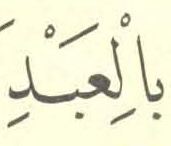 بالْعَبْدِ